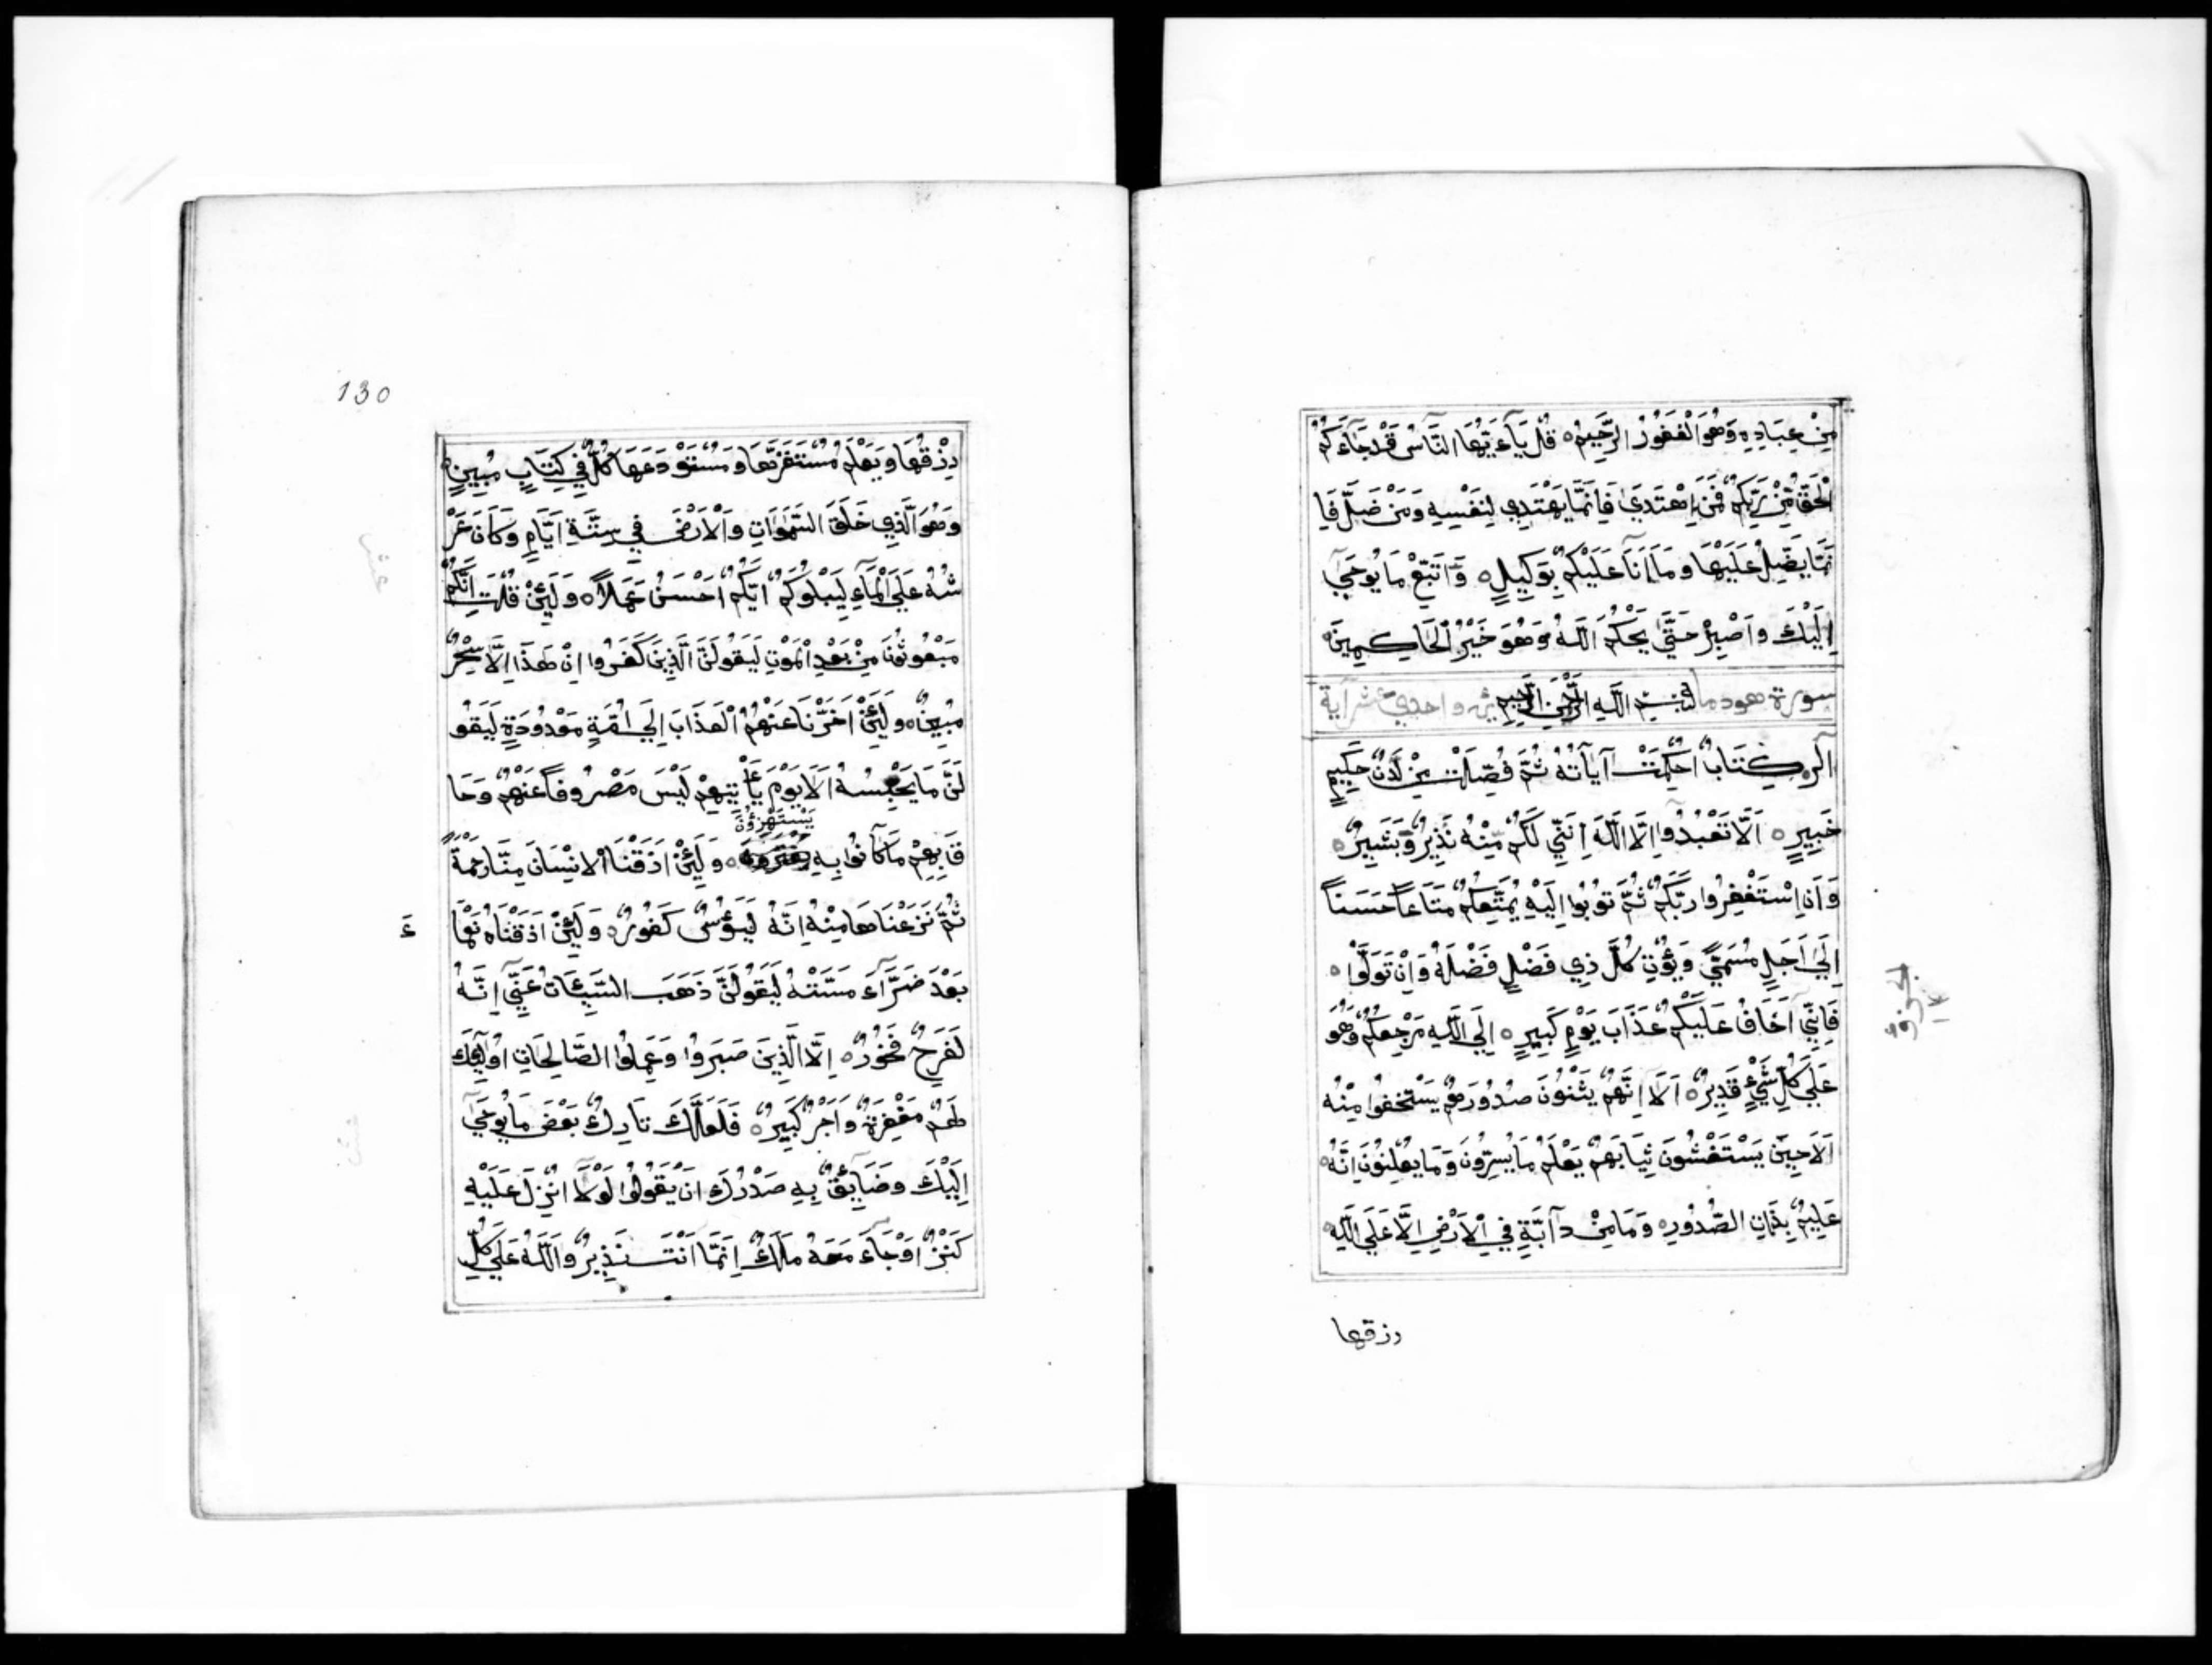 مِنْ عِبَادِهِ وَهُوَ الْغَفُورُ الرَّحِيمُ ه قُلْ يَآءَيُّهَا النَّاسُ قَدْ جَآءَكُمُ
الْحَقُّ مِنْ رَبِّكُمْ فَمَنِ اهْتَدَى فَإِنَّمَا يَهْتَدِي لِنَفْسِهِ وَمَنْ ضَلَّ فَإِ
نَّمَا يَضِلُّ عَلَيْهَا وَمَآ أَنَا عَلَيْكُمْ بِوَكِيلٍ ه وَاتَّبِعْ مَا يُوحَى
إِلَيْكَ وَاصْبِرْ حَتَّى يَحْكُمَ اللَّهُ وَهُوَ خَيْرُ الْحَاكِمِينَ
سورة هود بِسْمِ اللَّهِ الرَّحْمَنِ الرَّحِيمِ واحدى عشر آية
آلر ه كِتَابٌ أُحْكِمَتْ آيَاتُهُ ثُمَّ فُصِّلَتْ مِنْ لَدُنْ حَكِيمٍ
خَبِيرٍ ه أَلَّا تَعْبُدُوا إِلَّا اللَّهَ إِنَّنِي لَكُمْ مِنْهُ نَذِيرٌ وَبَشِيرٌ ه
وَأَنِ اسْتَغْفِرُوا رَبَّكُمْ ثُمَّ تُوبُوا إِلَيْهِ يُمَتِّعْكُمْ مَتَاعًا حَسَنًا
إِلَى أَجَلٍ مُسَمًّى وَيُؤْتِ كُلَّ ذِي فَضْلٍ فَضْلَهُ وَإِنْ تَوَلَّوْا ه
فَإِنِّي أَخَافُ عَلَيْكُمْ عَذَابَ يَوْمٍ كَبِيرٍ ه إِلَى اللَّهِ مَرْجِعُكُمْ وَهُوَ
عَلَى كُلِّ شَيْءٍ قَدِيرٌ ه أَلَا إِنَّهُمْ يَثْنُونَ صُدُورَهُمْ يَسْتَخْفُوا مِنْهُ
أَلَا حِينَ يَسْتَغْشُونَ ثِيَابَهُمْ يَعْلَمُ مَا يُسِرُّونَ وَمَا يُعْلِنُونَ إِنَّهُ
عَلِيمٌ بِذَاتِ الصُّدُورِ ه وَمَا مِنْ دَآبَّةٍ فِي الْأَرْضِ إِلَّا عَلَى اللَّهِ
رزقها
130
رِزْقُهَا وَيَعْلَمُ مُسْتَقَرَّهَا وَمُسْتَوْدَعَهَا كُلٌّ فِي كِتَابٍ مُبِينٍ
وَهُوَ الَّذِي خَلَقَ السَّمَوَاتِ وَالْأَرْضَ فِي سِتَّةِ أَيَّامٍ وَكَانَ عَرْ
شُهُ عَلَى الْمَآءِ لِيَبْلُوَكُمْ أَيُّكُمْ أَحْسَنُ عَمَلًا ه وَلَئِنْ قُلْتَ إِنَّكُمْ
مَبْعُوثُونَ مِنْ بَعْدِ الْمَوْتِ لَيَقُولَنَّ الَّذِينَ كَفَرُوا إِنْ هَذَا إِلَّا سِحْرٌ
مُبِينٌ ه وَلَئِنْ أَخَّرْنَا عَنْهُمُ الْعَذَابَ إِلَى أُمَّةٍ مَعْدُودَةٍ لَيَقُو
لُنَّ مَا يَحْبِسُهُ أَلَا يَوْمَ يَأْتِيهِمْ لَيْسَ مَصْرُوفًا عَنْهُمْ وَحَا
قَ بِهِمْ مَا كَانُوا بِهِ يَسْتَهْزِؤُنَ ه وَلَئِنْ أَذَقْنَا الْإِنْسَانَ مِنَّا رَحْمَةً
ثُمَّ نَزَعْنَاهَا مِنْهُ إِنَّهُ لَيَؤُسٌ كَفُورٌ ه وَلَئِنْ أَذَقْنَاهُ نَعْمَا
ءَ
بَعْدَ ضَرَّآءَ مَسَّتْهُ لَيَقُولَنَّ ذَهَبَ السَّيِّئَاتُ عَنِّي إِنَّهُ
لَفَرِحٌ فَخُورٌ ه إِلَّا الَّذِينَ صَبَرُوا وَعَمِلُوا الصَّالِحَاتِ أُولَئِكَ
لَهُمْ مَغْفِرَةٌ وَأَجْرٌ كَبِيرٌ ه فَلَعَلَّكَ تَارِكٌ بَعْضَ مَا يُوحَى
إِلَيْكَ وَضَآئِقٌ بِهِ صَدْرُكَ أَنْ يَقُولُوا لَوْلَا أُنْزِلَ عَلَيْهِ
كَنْزٌ أَوْ جَآءَ مَعَهُ مَلَكٌ إِنَّمَا أَنْتَ نَذِيرٌ وَاللَّهُ عَلَى كُلِّ